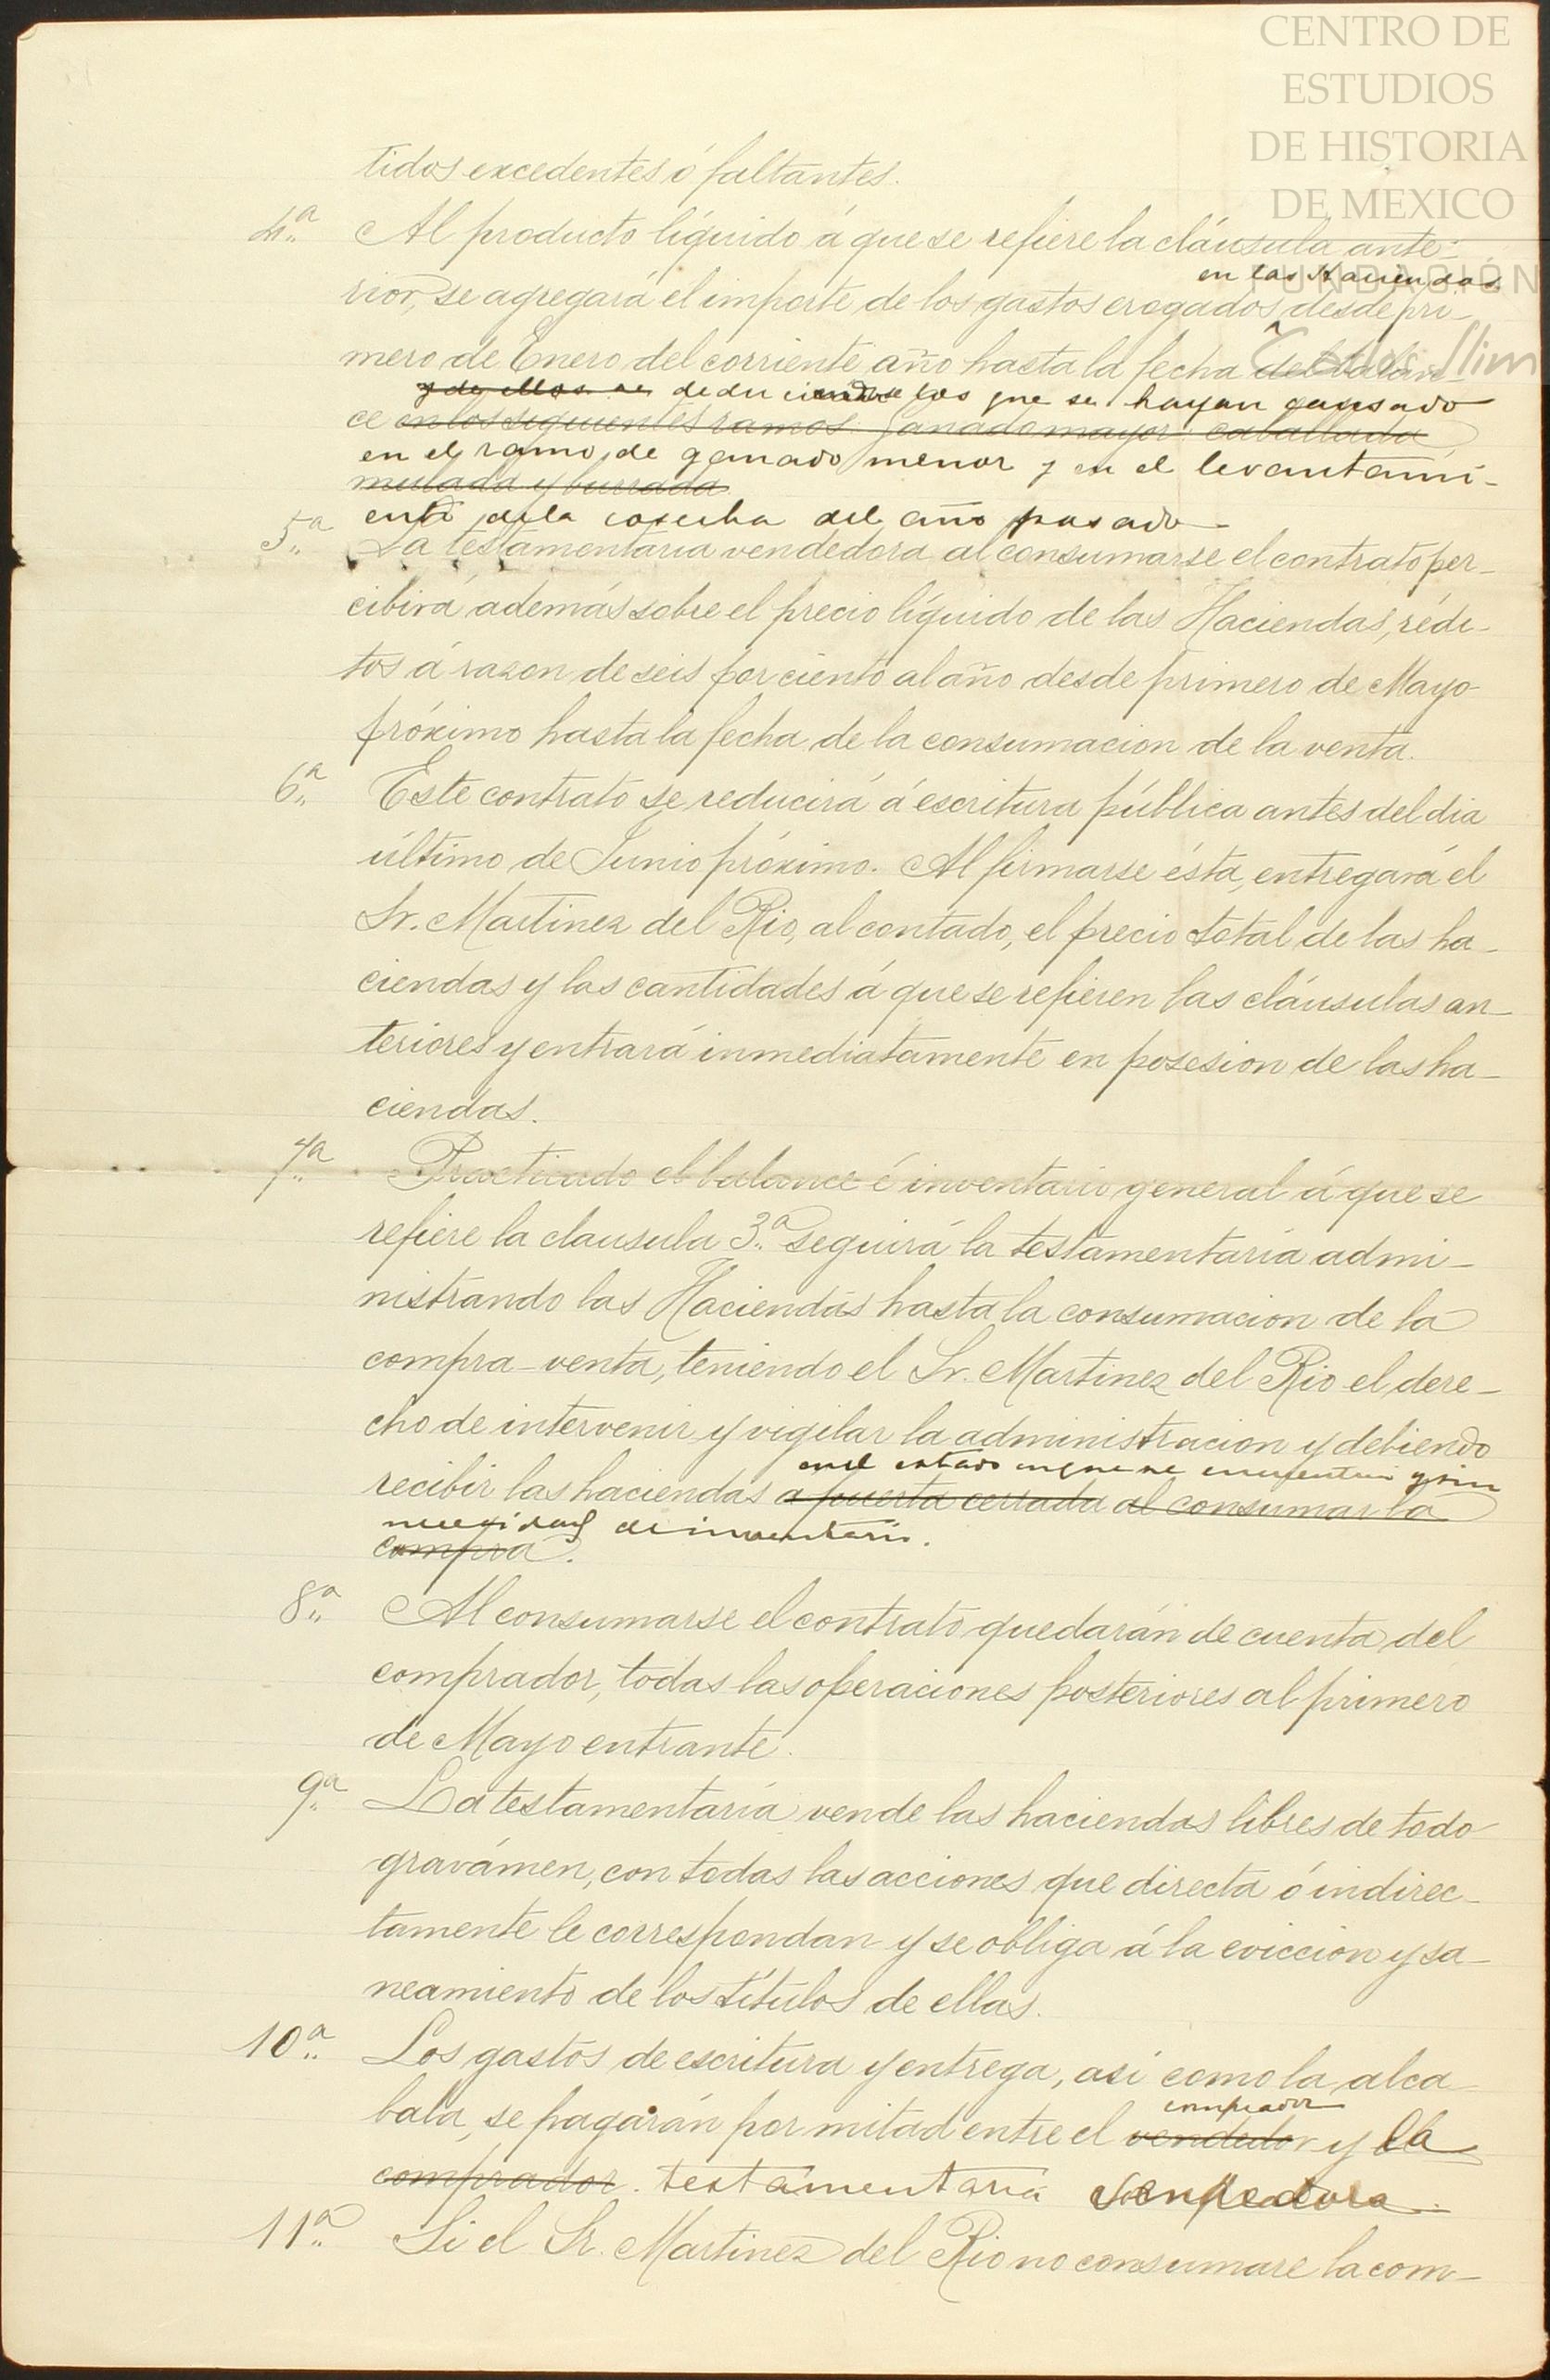 CENTRO DE
ESTUDIOS
DE HISTORIA
DE MEXICO
FUNDACIÓN
Carlos Slim
tidos excedentes ó faltantes.
4.ª Al producto líquido á que se refiere la cláusula ante-
en las Haciendas
rior, se agregará el importe de los gastos erogados desde pri-
mero de Enero del corriente año hasta la fecha del balan-
y de ellos se deduciendose los que se hayan causado
ce en los siguientes ramos: Ganado mayor caballada
en el ramo de ganado menor y en el levantami-
mulada y burrada
ento de la cosecha del año pasado
5.ª La testamentaría vendedora al consumarse el contrato per-
cibirá además sobre el precio líquido de las Haciendas, rédi-
tos á razon de seis por ciento al año desde primero de Mayo
próximo hasta la fecha de la consumacion de la venta.
6.ª Este contrato se reducirá á escritura pública antes del dia
último de Junio próximo. Al firmarse ésta, entregará el
Sr. Martinez del Rio, al contado, el precio total de las ha-
ciendas y las cantidades á que se refieren las cláusulas an-
teriores y entrará inmediatamente en posesion de las ha-
ciendas.
7.ª Practicado el balance é inventario general á que se
refiere la clausula 3.ª seguirá la testamentaría admi-
nistrando las Haciendas hasta la consumacion de la
compra-venta, teniendo el Sr. Martinez del Rio el dere-
cho de intervenir y vigilar la administracion y debiendo
en el estado en que se encuentren y sin
recibir las haciendas a puerta cerrada al consumar la
necesidad de inventario.
compra.
8.ª Al consumarse el contrato quedarán de cuenta del
comprador, todas las operaciones posteriores al primero
de Mayo entrante.
9.ª La testamentaría vende las haciendas libres de todo
gravámen, con todas las acciones que directa ó indirec-
tamente le correspondan y se obliga á la eviccion y sa-
neamiento de los títulos de ellas.
10.ª Los gastos de escritura y entrega, asi como la alca-
comprador
bala, se pagarán por mitad entre el vendedor y la
comprador. testamentaria vendedora.
11.ª Si el Sr. Martinez del Rio no consumare la com-